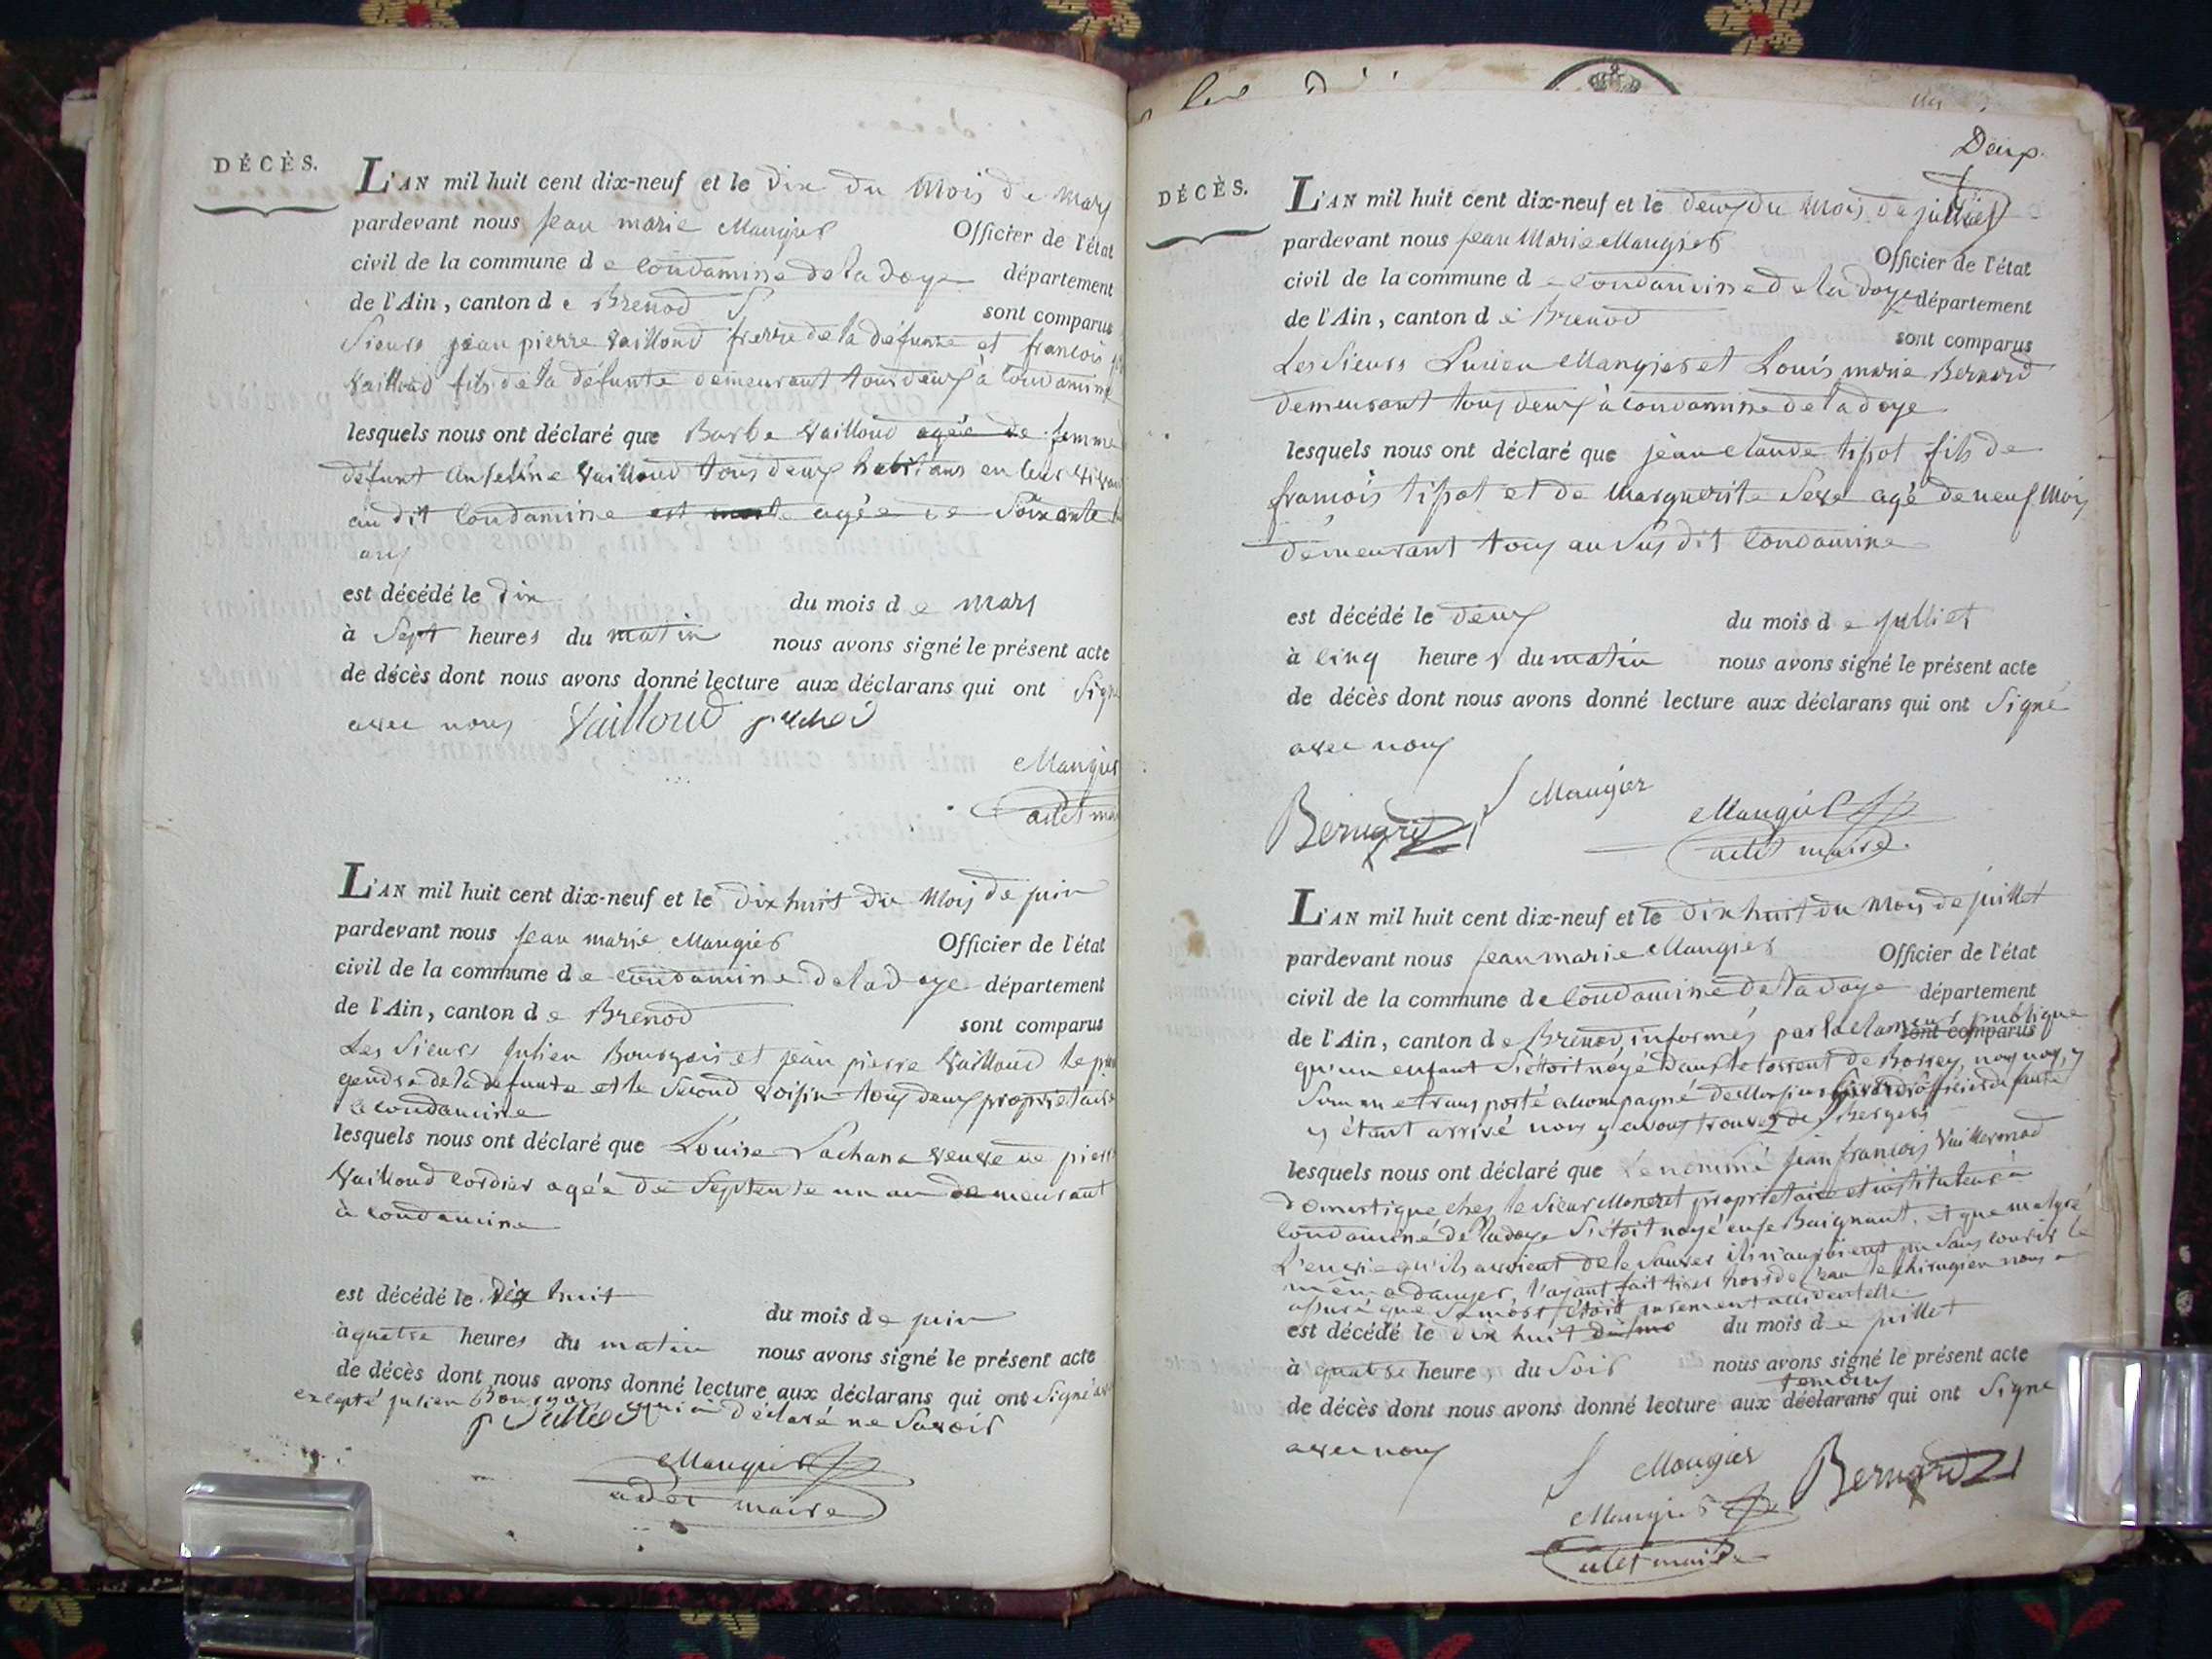 DÉCÈS.
L'AN mil huit cent dix-neuf et le dix du mois de mars
pardevant nous jean marie Maugier Officier de l'état
civil de la commune de Condamine de la doye département
de l'Ain, canton de Brenod sont comparus
Sieurs jean pierre Vailloud frerre de la défunte et francois
Vailloud fils de la défunte demeurant tous deux à Condamine
lesquels nous ont déclaré que Barbe Vailloud agée de femme
défunt Anselme Vailloud tous deux habitans en leur vivan
au dit Condamine est morte agée de Soixante
ans
est décédé le dix du mois de mars
à Sept heures du matin nous avons signé le présent acte
de décès dont nous avons donné lecture aux déclarans qui ont Signé
avec nous Vailloud
Maugier
adet mai
L'AN mil huit cent dix-neuf et le dix huit du mois de juin
pardevant nous jean marie Maugier Officier de l'état
civil de la commune de Condamine de la doye département
de l'Ain, canton de Brenod sont comparus
Les Sieurs Julien Bourgois et jean pierre Vailloud le
gendre de la defunte et le Second voisin tous deux propriétaire
de Condamine
lesquels nous ont déclaré que Louise Sachana veuve de pierre
Vailloud Cordier agée de Septente un an demeurant
à Condamine
est décédé le dix huit du mois de juin
à quatre heures du matin nous avons signé le présent acte
de décès dont nous avons donné lecture aux déclarans qui ont Signé
excepté julien Bourgois qui a déclaré ne Savoir
Maugier
adet maire
Deux
DÉCÈS.
L'AN mil huit cent dix-neuf et le deux du mois de juilliet
pardevant nous jean Marie Maugier Officier de l'état
civil de la commune de Condamine de la doye département
de l'Ain, canton de Brenod sont comparus
Les Sieurs Lucien Maugier et Louis marie Bernard
demeurant tous deux à Condamine de la doye
lesquels nous ont déclaré que jean claude tipot fils de
francois tipot et de Marguerite Seve agé de neuf Mois
demeurant tous au Sus dit Condamine
est décédé le deux du mois de julliet
à Cinq heures du matin nous avons signé le présent acte
de décès dont nous avons donné lecture aux déclarans qui ont Signé
avec nous
Bernard Maugier
Maugier
adet maire
L'AN mil huit cent dix-neuf et le dix huit du mois de juillet
pardevant nous jean marie Maugier Officier de l'état
civil de la commune de Condamine de la doye département
de l'Ain, canton de Brenod, informés par la clameur publique sont comparus
qu'un enfant S'étoit noyé dans le torrent de Borrey nous nous y
Sommes transporté accompagné de officier de santé
y étant arrivé nous y avons trouvé des Bergers
lesquels nous ont déclaré que le nommé jean francois Vuillermod
domestique chez le Sieur Moneret propriétaire et instituteur à
Condamine de la doye S'étoit noyé en se Baignant, et que malgré
L'envie qu'ils avoient de le Sauver ils n'auroient pu Sans courir le
même danger, l'ayant fait tirer hors de l'eau le chirugien nous a
assuré que Sa mort étoit purement accidentelle
est décédé le dix huit du mois de juillet
à quatre heures du Soir nous avons signé le présent acte
temoins
de décès dont nous avons donné lecture aux déclarans qui ont Signé
avec nous
Maugier Bernard
Maugier
adet maire